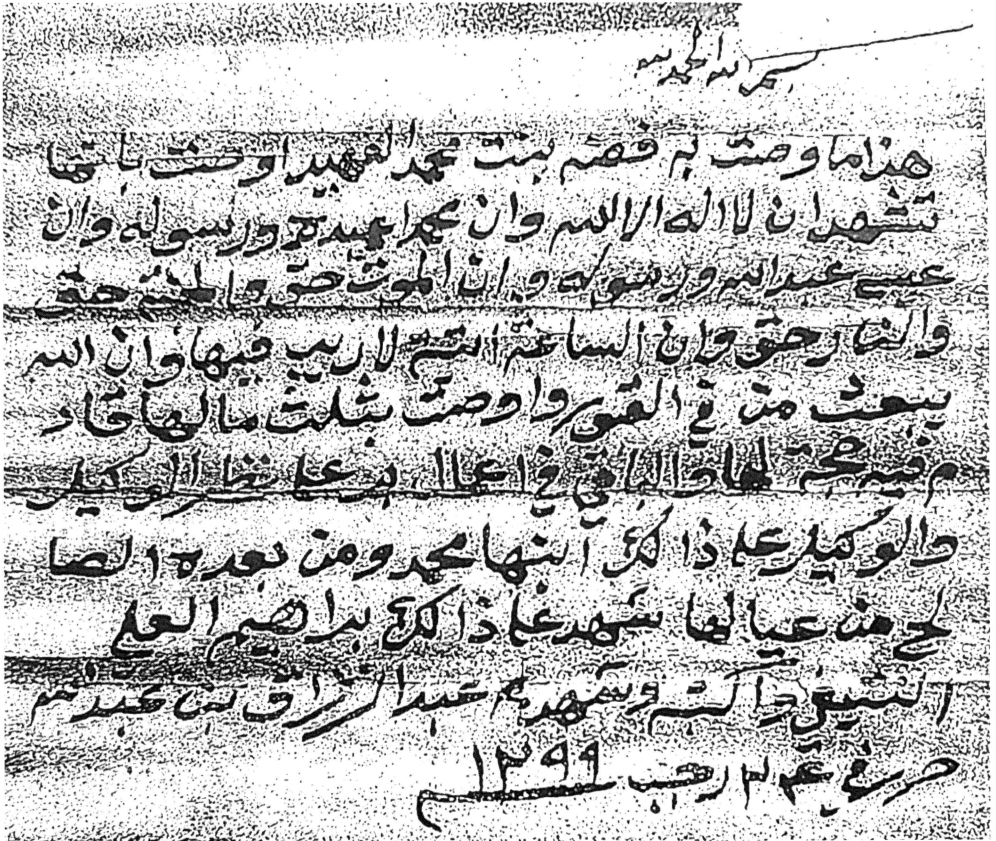 بسم الله الحمد لله
هذا ما وصت به فضه بنت محمد العهيد اوصت بانها
تشهد ان لا اله الا الله وان محمدا عبده ورسوله وان
عيسى عبد الله ورسوله وان الموت حق والجنه حق
والنار حق وان الساعة اتيه لا ريب فيها وان الله
يبعث من في القبور واوصت بثلث مالها قاد
م فيه حجة لها والباقي في اعمال بر على نظر الوكيل
والوكيل على ذالك ابنها محمد ومن بعده الصا
لح من عيالها شهد على ذالك براهيم العلي
وكتبه وشهد به عبد الرزاق بن عبد الله
حرر في رجب ١٢٩٩